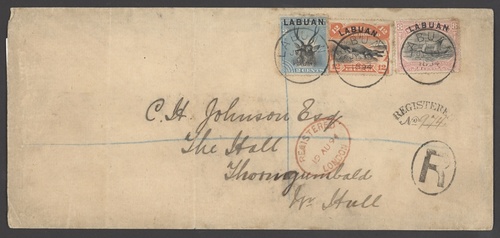 LABUAN
LABUAN
LABUAN
1894
REGISTERED
No 924
C. H. Johnson Esq.
The Hall
Thorngumbald
Nr Hull
REGISTERED
10 AU 94
LONDON
R